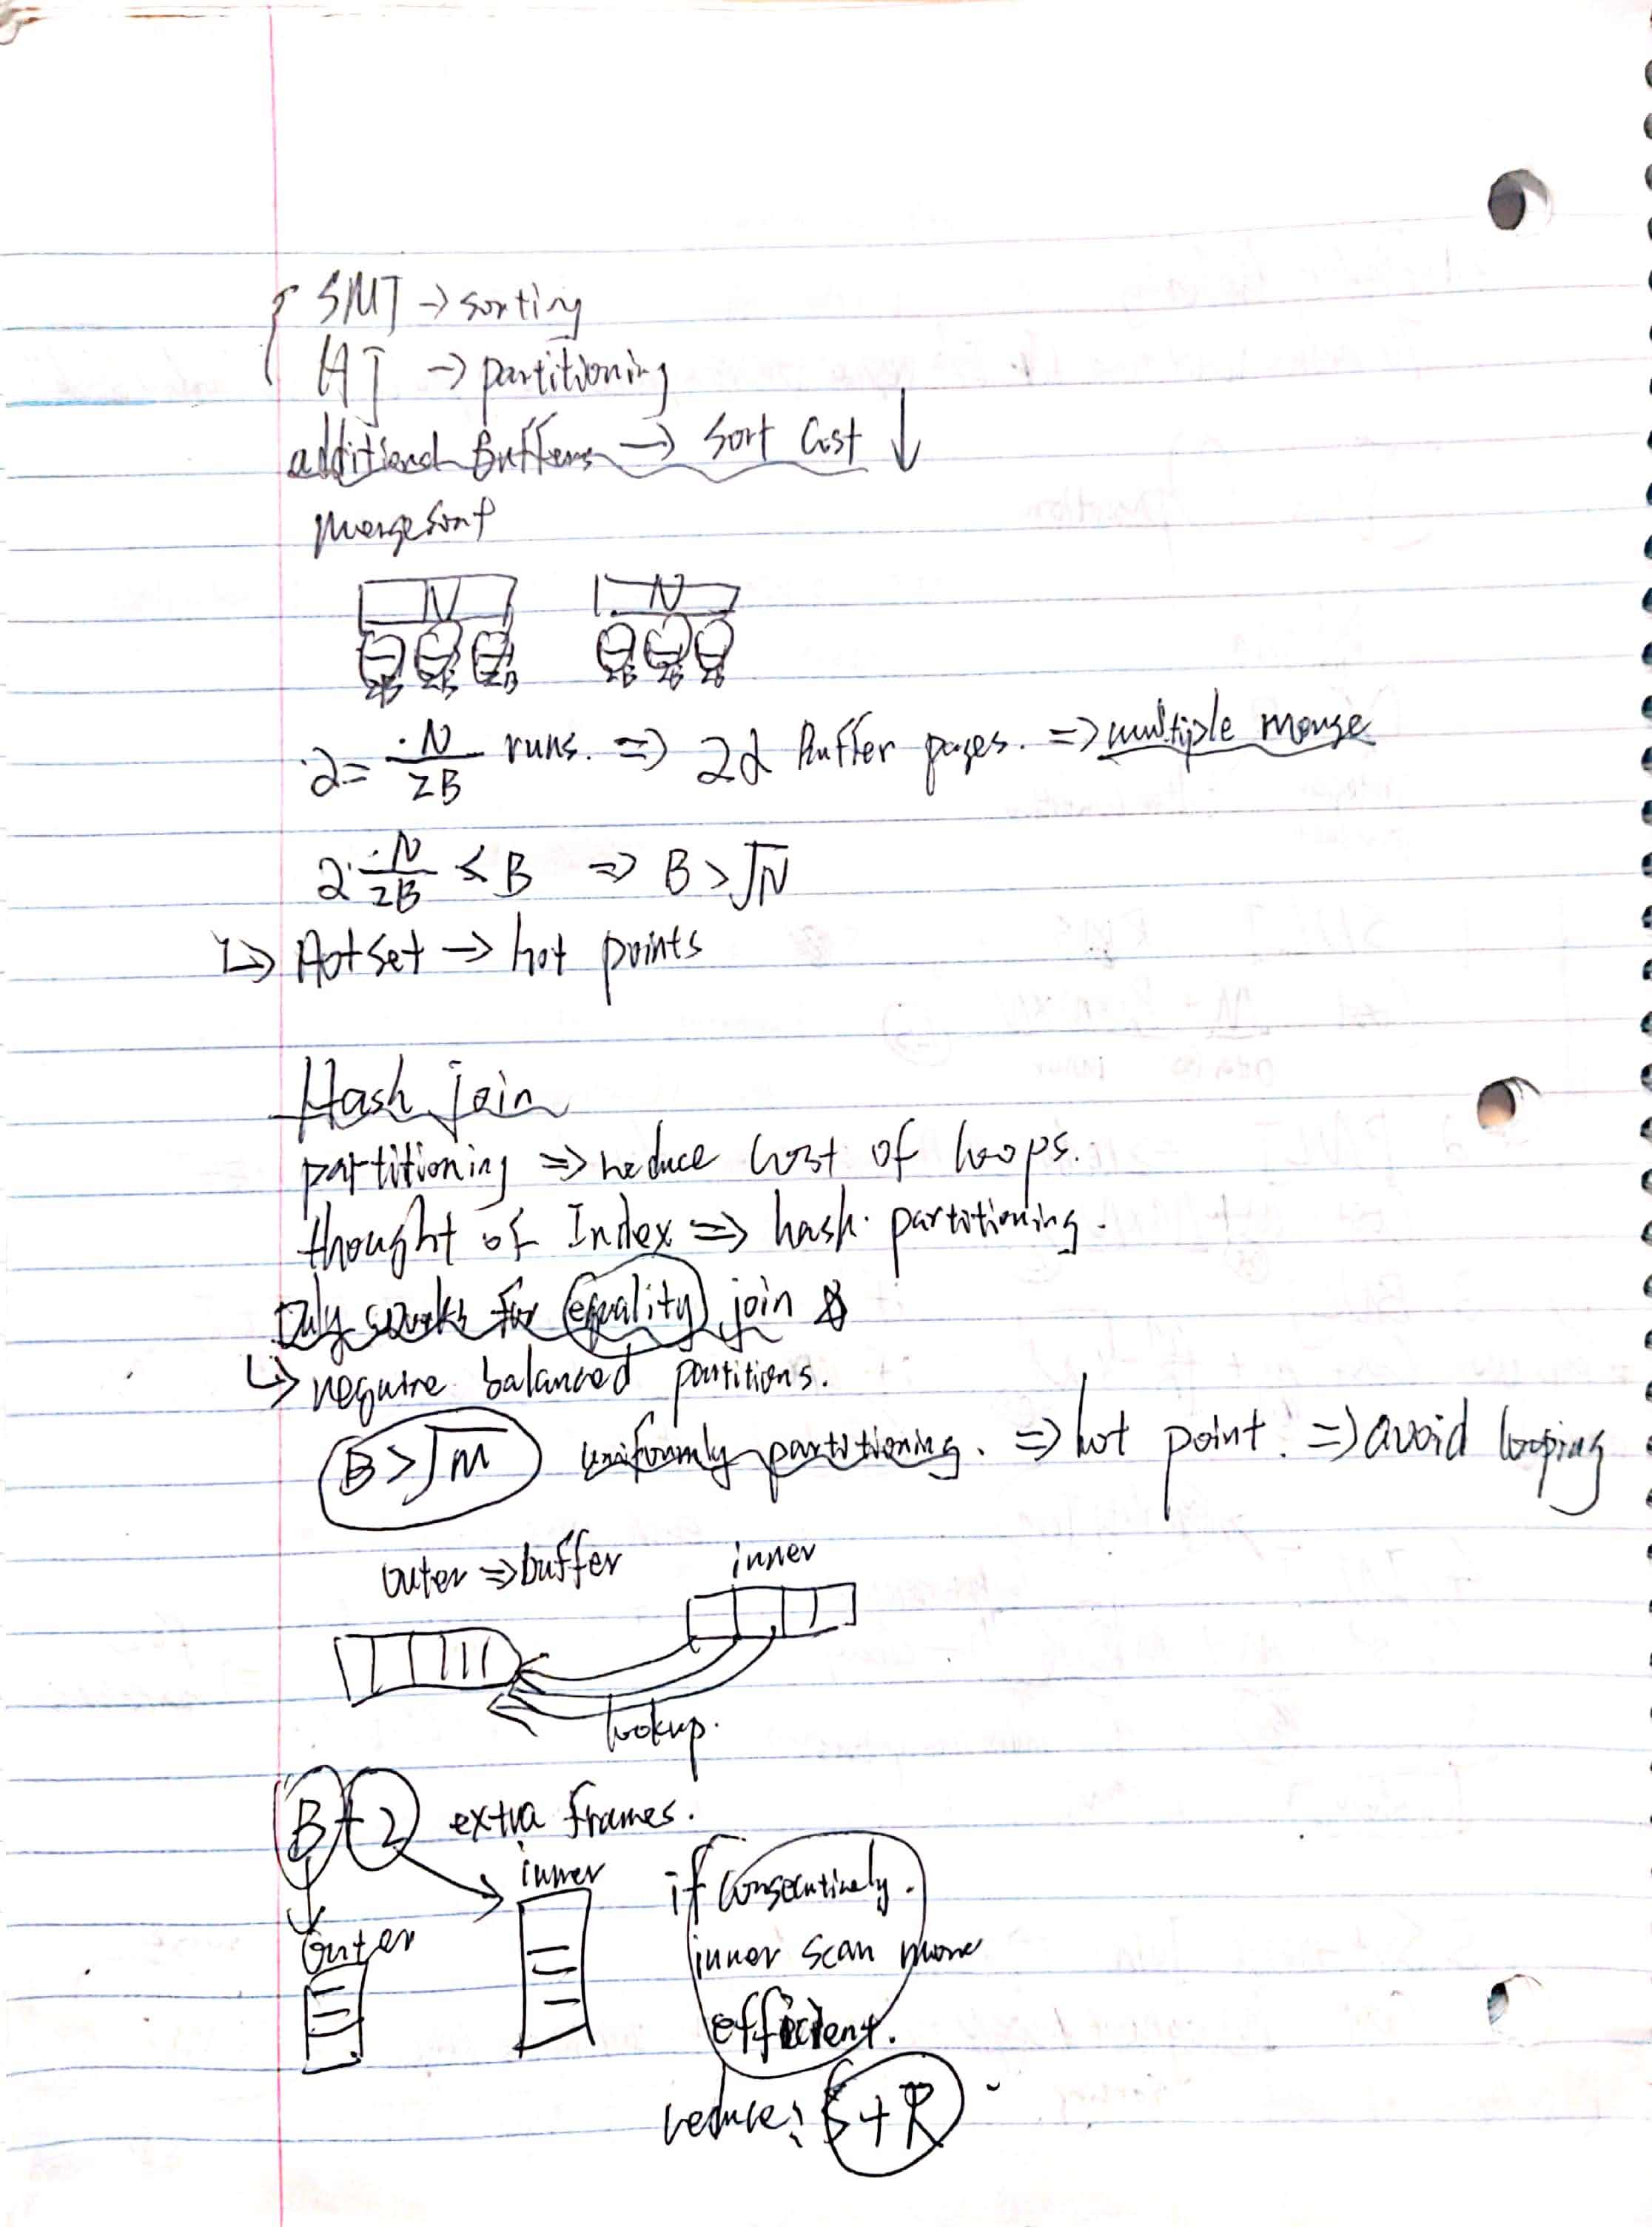 SMJ → sorting
HJ → partitioning
additional Buffers → sort Cost ↓
Mergesort
N N
2B 2B 2B 2B 2B 2B
2 = N/2B runs. ⇒ 2d Buffer pages. ⇒ multiple merge
2·N/2B < B ⇒ B > √N
↳ Hotset → hot points
Hash join
partitioning ⇒ reduce cost of loops.
thought of Index ⇒ hash partitioning.
Only works for equality join
↳ require balanced partitions.
B > √M uniformly partitioning. ⇒ hot point. ⇒ avoid looping
outer ⇒ buffer inner
lookup.
B + 2 extra frames.
inner if consecutively.
outer inner scan more
efficient.
reduce: S + R